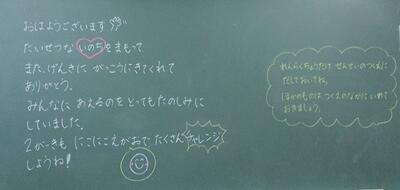 おはようございます
たいせつな いのちをまもって
また、げんきに がっこうにきてくれて
ありがとう。
みんなに あえるのを とってもたのしみに
していました。
2がっきも にこにこえがおで たくさん チャレンジ
しようね!
れんらくちょうだけ せんせいのつくえに
だしておいてね。
ほかのものは つくえのなかに いれて
おきましょう。